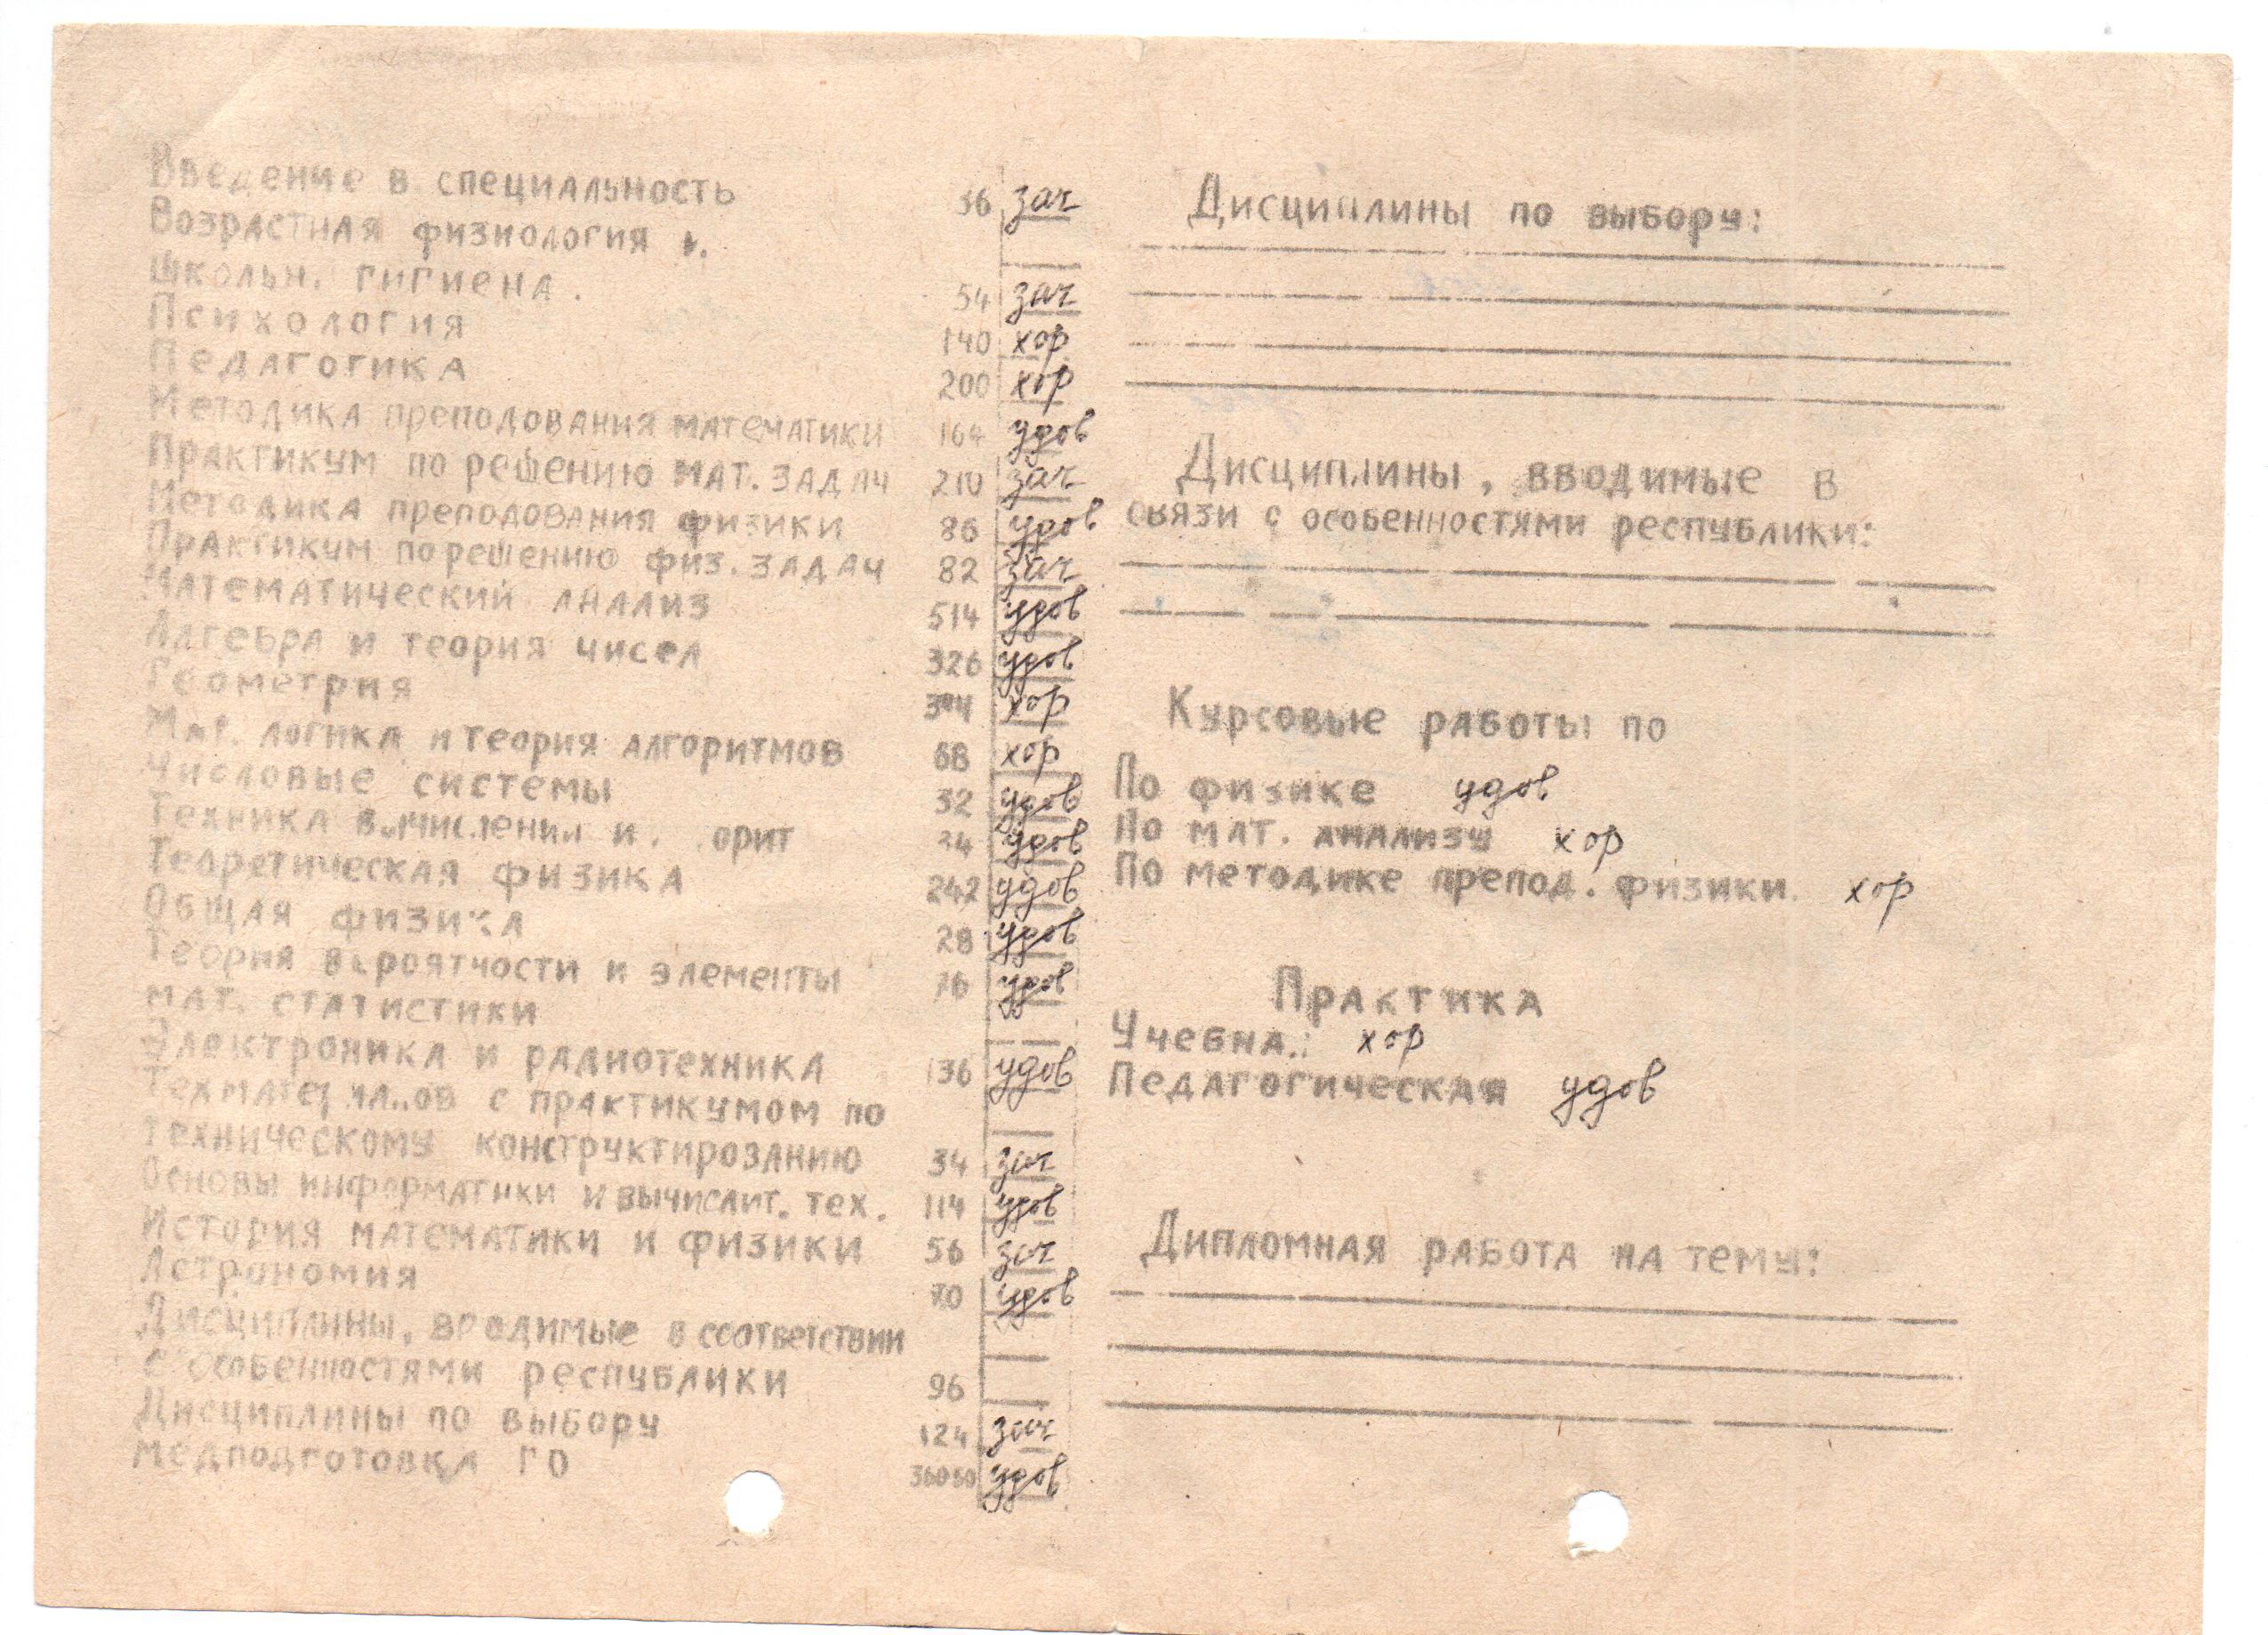 Введение в специальность 36 зач
Возрастная физиология и.
школьн. гигиена. 54 зач
Психология 140 хор
Педагогика 200 хор
Методика преподования математики 164 удов
Практикум по решению мат. задач 210 зач
Методика преподования физики 86 удов
Практикум по решению физ. задач 82 зач
Математический анализ 514 удов
Алгебра и теория чисел 326 удов
Геометрия хор
Мат. логика и теория алгоритмов 68 хор
Числовые системы 32 удов
Техника вычисления и. орит 34 удов
Теоретическая физика 242 удов
Общая физика 28 удов
Теория вероятности и элементы 76 удов
мат. статистики
Электроника и радиотехника 136 удов
Тех материалов с практикумом по
техническому конструктированию 34 зач
Основы информатики и вычислит. тех. 114 удов
История математики и физики 56 зач
Астрономия 70 удов
Дисциплины, вводимые в соответствии
с особенностями республики 96
Дисциплины по выбору 124 зач
Медподготовка ГО удов
Дисциплины по выбору:
Дисциплины, вводимые в
связи с особенностями республики:
Курсовые работы по
По физике удов
По мат. анализу хор
По методике препод. физики. хор
Практика
Учебная: хор
Педагогическая удов
Дипломная работа на тему: